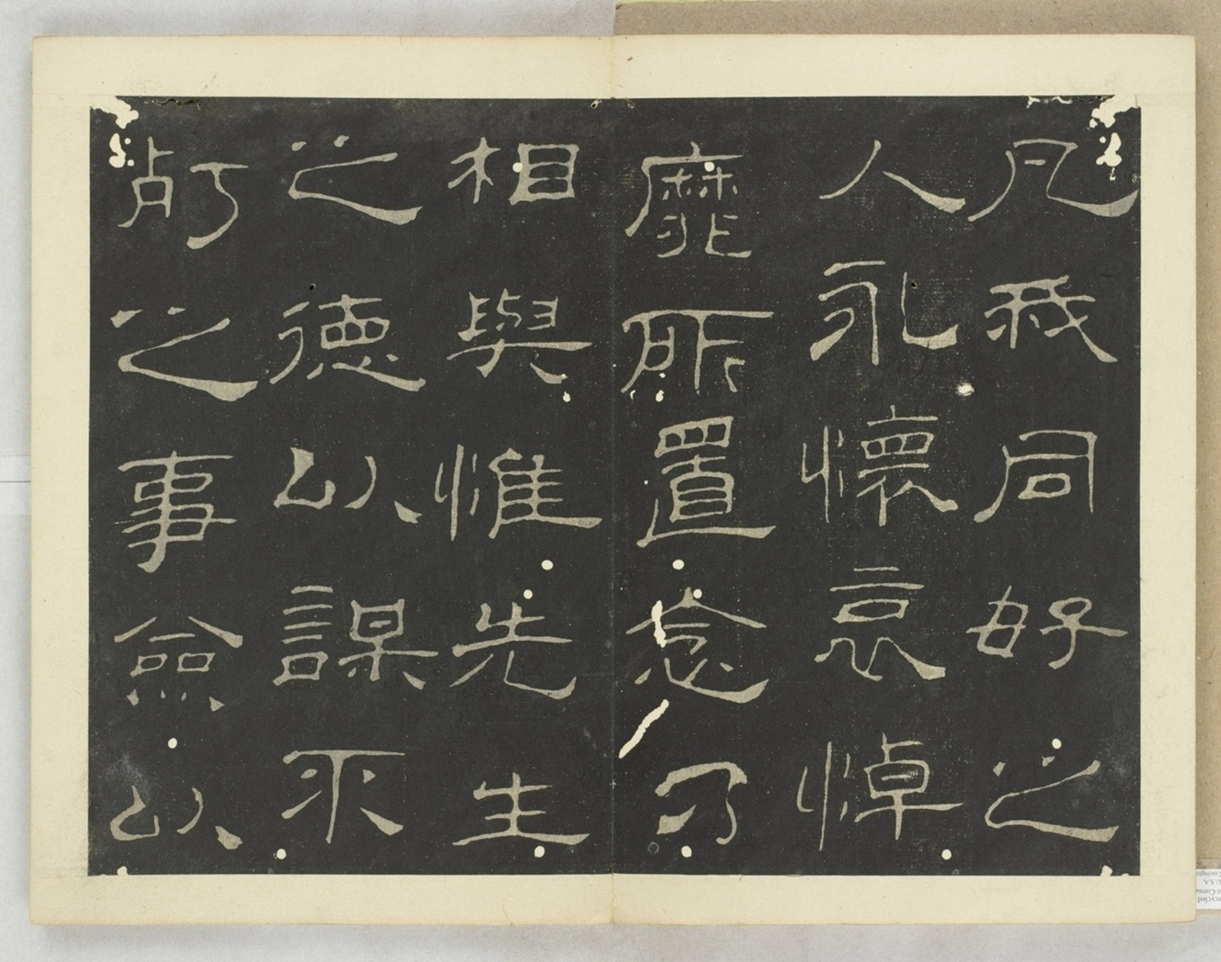 凡我同好之
人永懷哀悼
靡所置念乃
相與惟先生
之德以謀不
㱙之事僉以